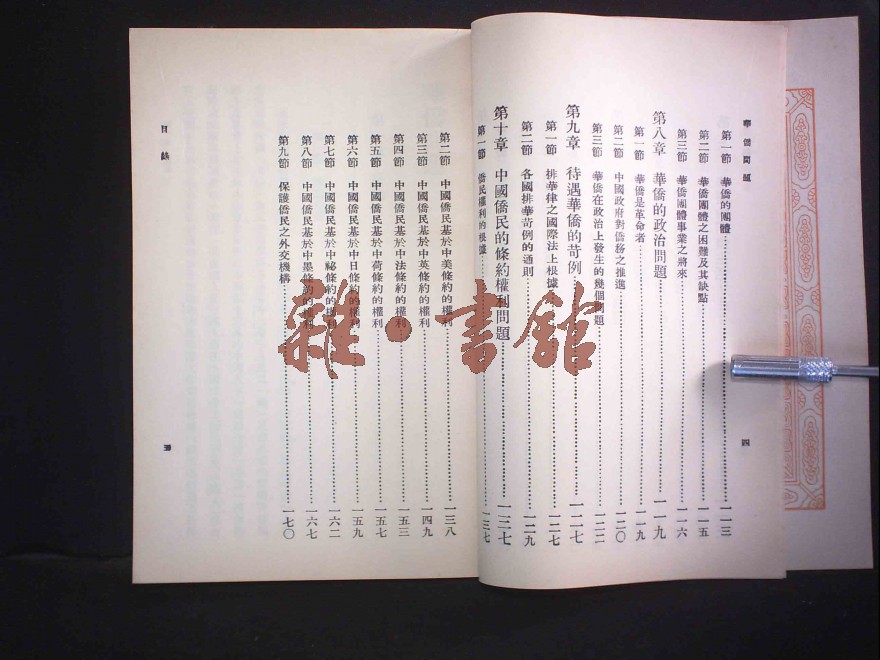 華僑問題
第一節 華僑的團體……一一三
第二節 華僑團體之困難及其缺點……一一五
第三節 華僑團體事業之將來……一一六
第八章 華僑的政治問題……一一九
第一節 華僑是革命者……一一九
第二節 中國政府對僑務之推進……一二〇
第三節 華僑在政治上發生的幾個問題……一二二
第九章 待遇華僑的苛例……一二七
第一節 排華律之國際法上根據……一二七
第二節 各國排華苛例的通則……一二九
第十章 中國僑民的條約權利問題……一三七
第一節 僑民權利的根據……一三七
四
第二節 中國僑民基於中美條約的權利……一三八
第三節 中國僑民基於中英條約的權利……一四九
第四節 中國僑民基於中法條約的權利……一五三
第五節 中國僑民基於中荷條約的權利……一五七
第六節 中國僑民基於中日條約的權利……一五九
第七節 中國僑民基於中祕條約的權利……一六二
第八節 中國僑民基於中墨條約的權利……一六七
第九節 保護僑民之外交機構……一七〇
目錄
五
雜·書館